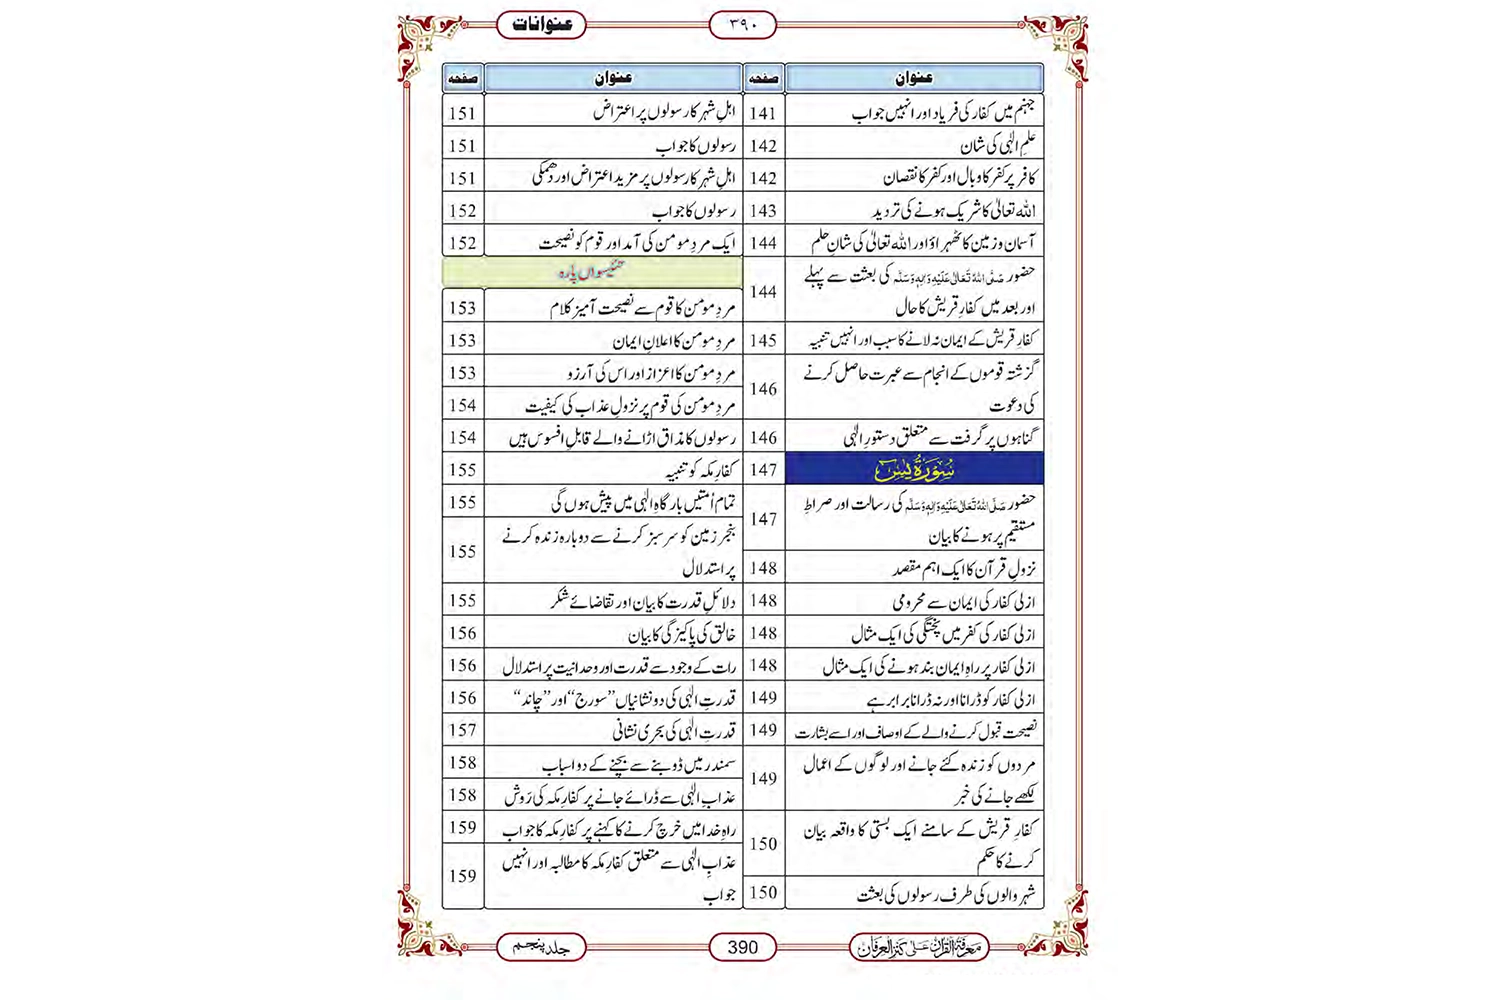 عنوانات
۳۹۰
عنوان صفحہ
جہنم میں کفار کی فریاد اور انہیں جواب 141
علمِ الٰہی کی شان 142
کافر پر کفر کا وبال اور کفر کا نقصان 142
اللہ تعالیٰ کا شریک ہونے کی تردید 143
آسمان و زمین کا ٹھہراؤ اور اللہ تعالیٰ کی شانِ حلم 144
حضور صَلَّی اللہُ تَعَالٰی عَلَیْہِ وَاٰلِہٖ وَسَلَّم کی بعثت سے پہلے 144
اور بعد میں کفارِ قریش کا حال
کفارِ قریش کے ایمان نہ لانے کا سبب اور انہیں تنبیہ 145
گزشتہ قوموں کے انجام سے عبرت حاصل کرنے 146
کی دعوت
گناہوں پر گرفت سے متعلق دستورِ الٰہی 146
سُوْرَۃُ یٰسٓ 147
حضور صَلَّی اللہُ تَعَالٰی عَلَیْہِ وَاٰلِہٖ وَسَلَّم کی رسالت اور صراطِ 147
مستقیم پر ہونے کا بیان
نزولِ قرآن کا ایک اہم مقصد 148
ازلی کفار کی ایمان سے محرومی 148
ازلی کفار کی کفر میں پختگی کی ایک مثال 148
ازلی کفار پر راہِ ایمان بند ہونے کی ایک مثال 148
ازلی کفار کو ڈرانا اور نہ ڈرانا برابر ہے 149
نصیحت قبول کرنے والے کے اوصاف اور اسے بشارت 149
مردوں کو زندہ کئے جانے اور لوگوں کے اعمال 149
لکھے جانے کی خبر
کفارِ قریش کے سامنے ایک بستی کا واقعہ بیان 150
کرنے کا حکم
شہر والوں کی طرف رسولوں کی بعثت 150
عنوان صفحہ
اہلِ شہر کا رسولوں پر اعتراض 151
رسولوں کا جواب 151
اہلِ شہر کا رسولوں پر مزید اعتراض اور دھمکی 151
رسولوں کا جواب 152
ایک مردِ مومن کی آمد اور قوم کو نصیحت 152
تئیسواں پارہ
مردِ مومن کا قوم سے نصیحت آمیز کلام 153
مردِ مومن کا اعلانِ ایمان 153
مردِ مومن کا اعزاز اور اس کی آرزو 153
مردِ مومن کی قوم پر نزولِ عذاب کی کیفیت 154
رسولوں کا مذاق اڑانے والے قابلِ افسوس ہیں 154
کفارِ مکہ کو تنبیہ 155
تمام اُمتیں بارگاہِ الٰہی میں پیش ہوں گی 155
بنجر زمین کو سرسبز کرنے سے دوبارہ زندہ کرنے 155
پر استدلال
دلائلِ قدرت کا بیان اور تقاضائے شکر 155
خالق کی پاکیزگی کا بیان 156
رات کے وجود سے قدرت اور وحدانیت پر استدلال 156
قدرتِ الٰہی کی دو نشانیاں ”سورج“ اور ”چاند“ 156
قدرتِ الٰہی کی بحری نشانی 157
سمندر میں ڈوبنے سے بچنے کے دو اسباب 158
عذابِ الٰہی سے ڈرائے جانے پر کفارِ مکہ کی رَوِش 158
راہِ خدا میں خرچ کرنے کا کہنے پر کفارِ مکہ کا جواب 159
عذابِ الٰہی سے متعلق کفارِ مکہ کا مطالبہ اور انہیں 159
جواب
معرفۃ القرآن علی کنز العرفان
390
جلد پنجم